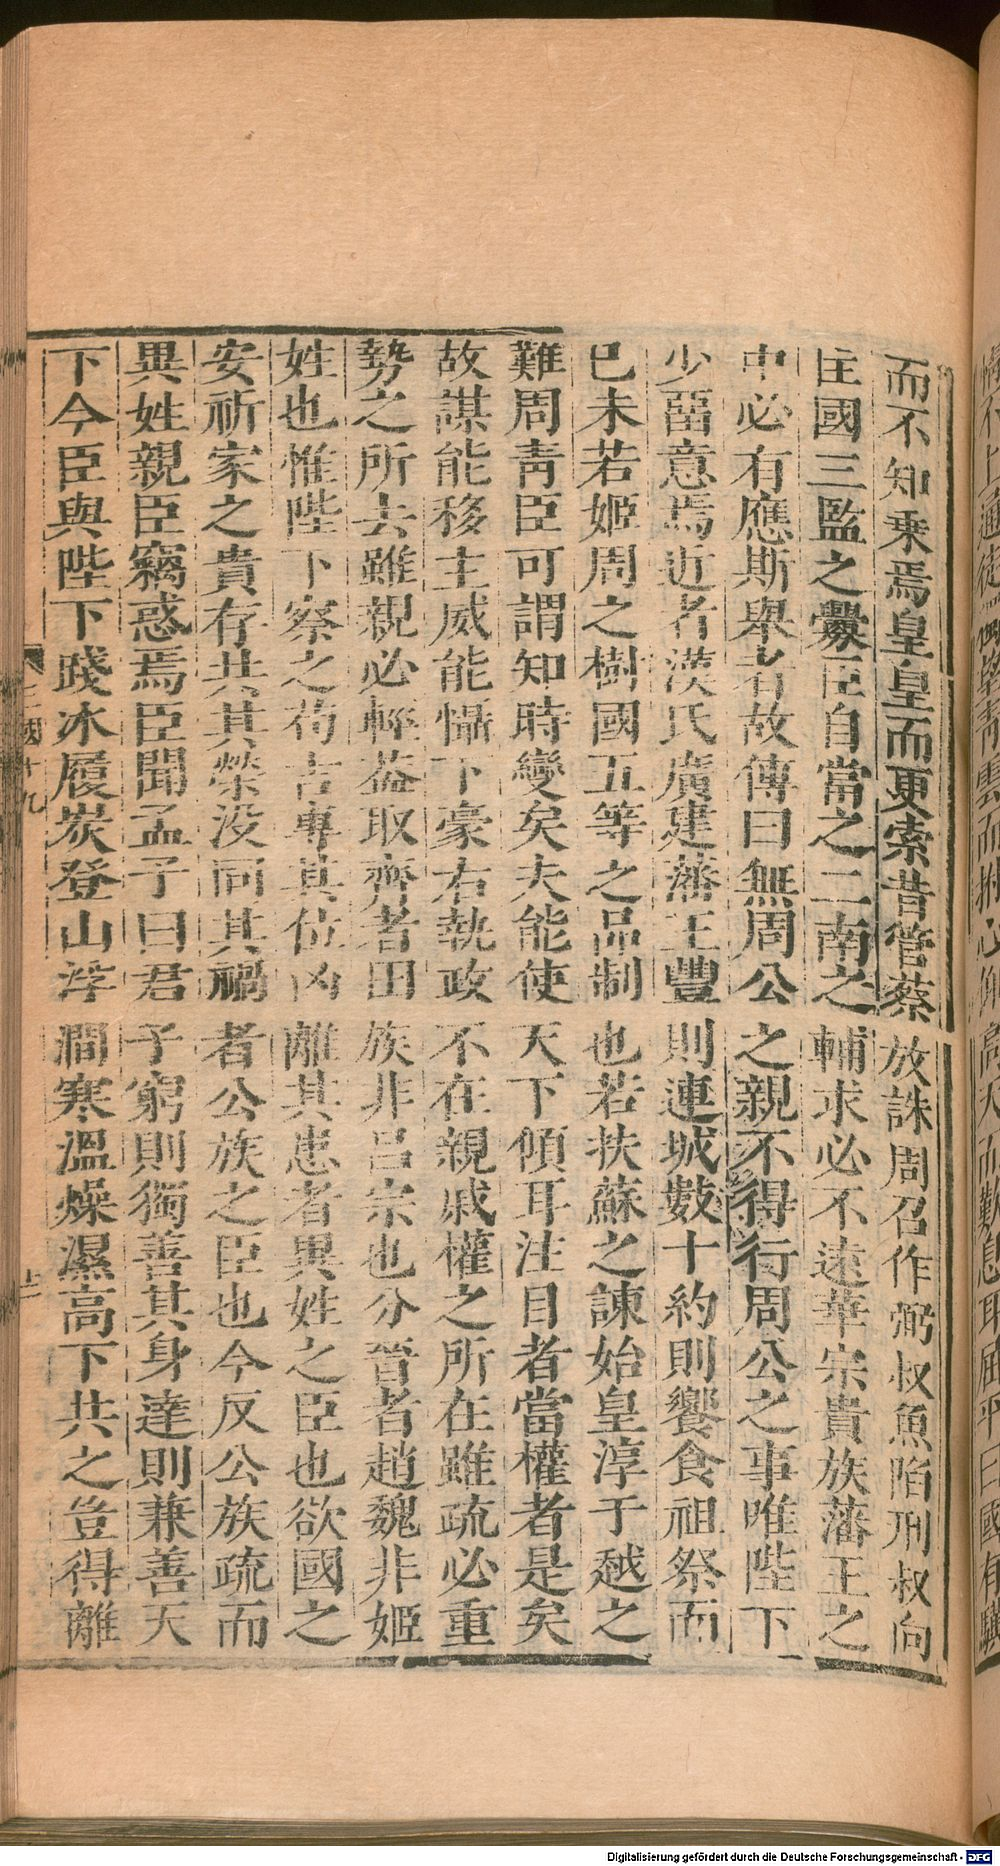 而不知乗焉皇皇而更索昔管蔡放誅周召作弼叔魚陷刑叔向
匡國三監之釁臣自當之二南之輔求必不遠華宗貴族藩王之
中必有應斯舉者故傳曰無周公之親不得行周公之事唯陛下
少畱意焉近者漢氏廣建藩王豐則連城數十約則饗食祖祭而
已未若姬周之樹國五等之品制也若扶蘇之諫始皇淳于越之
難周靑臣可謂知時變矣夫能使天下傾耳注目者當權者是矣
故謀能移主威能懾下豪右執政不在親戚權之所在雖疏必重
勢之所去雖親必輕葢取齊者田族非呂宗也分晉者趙魏非姬
姓也惟陛下察之苟吉專其位凶離其患者異姓之臣也欲國之
安祈家之貴存共其榮没同其禍者公族之臣也今反公族疏而
異姓親臣竊惑焉臣聞孟子曰君子窮則獨善其身達則兼善天
下今臣與陛下踐冰履炭登山浮澗寒溫燥濕高下共之豈得離
三國十九
Digitalisierung gefördert durch die Deutsche Forschungsgemeinschaft - DFG